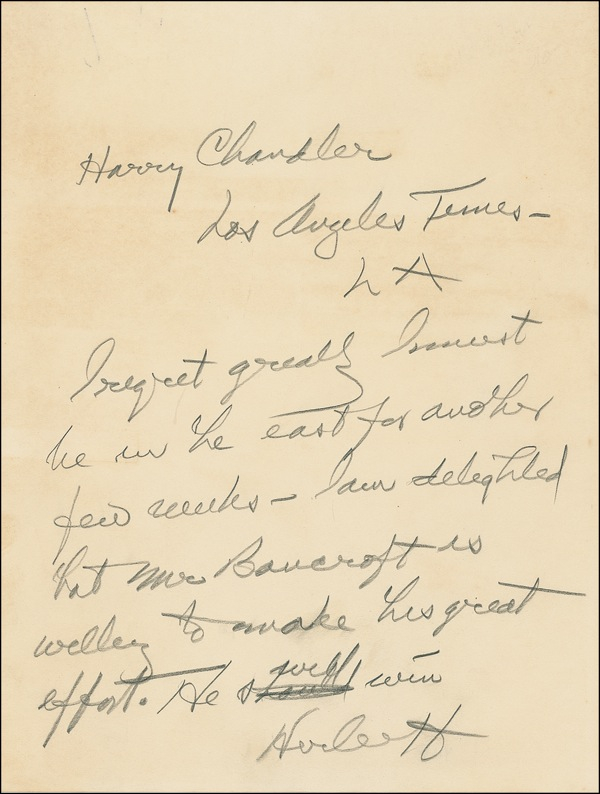 Harry Chandler
Los Angeles Times –
LA
I regret greatly I must
be in the east for another
few weeks – I am delighted
that Mr Bancroft is
willing to make this great
effort. He will win